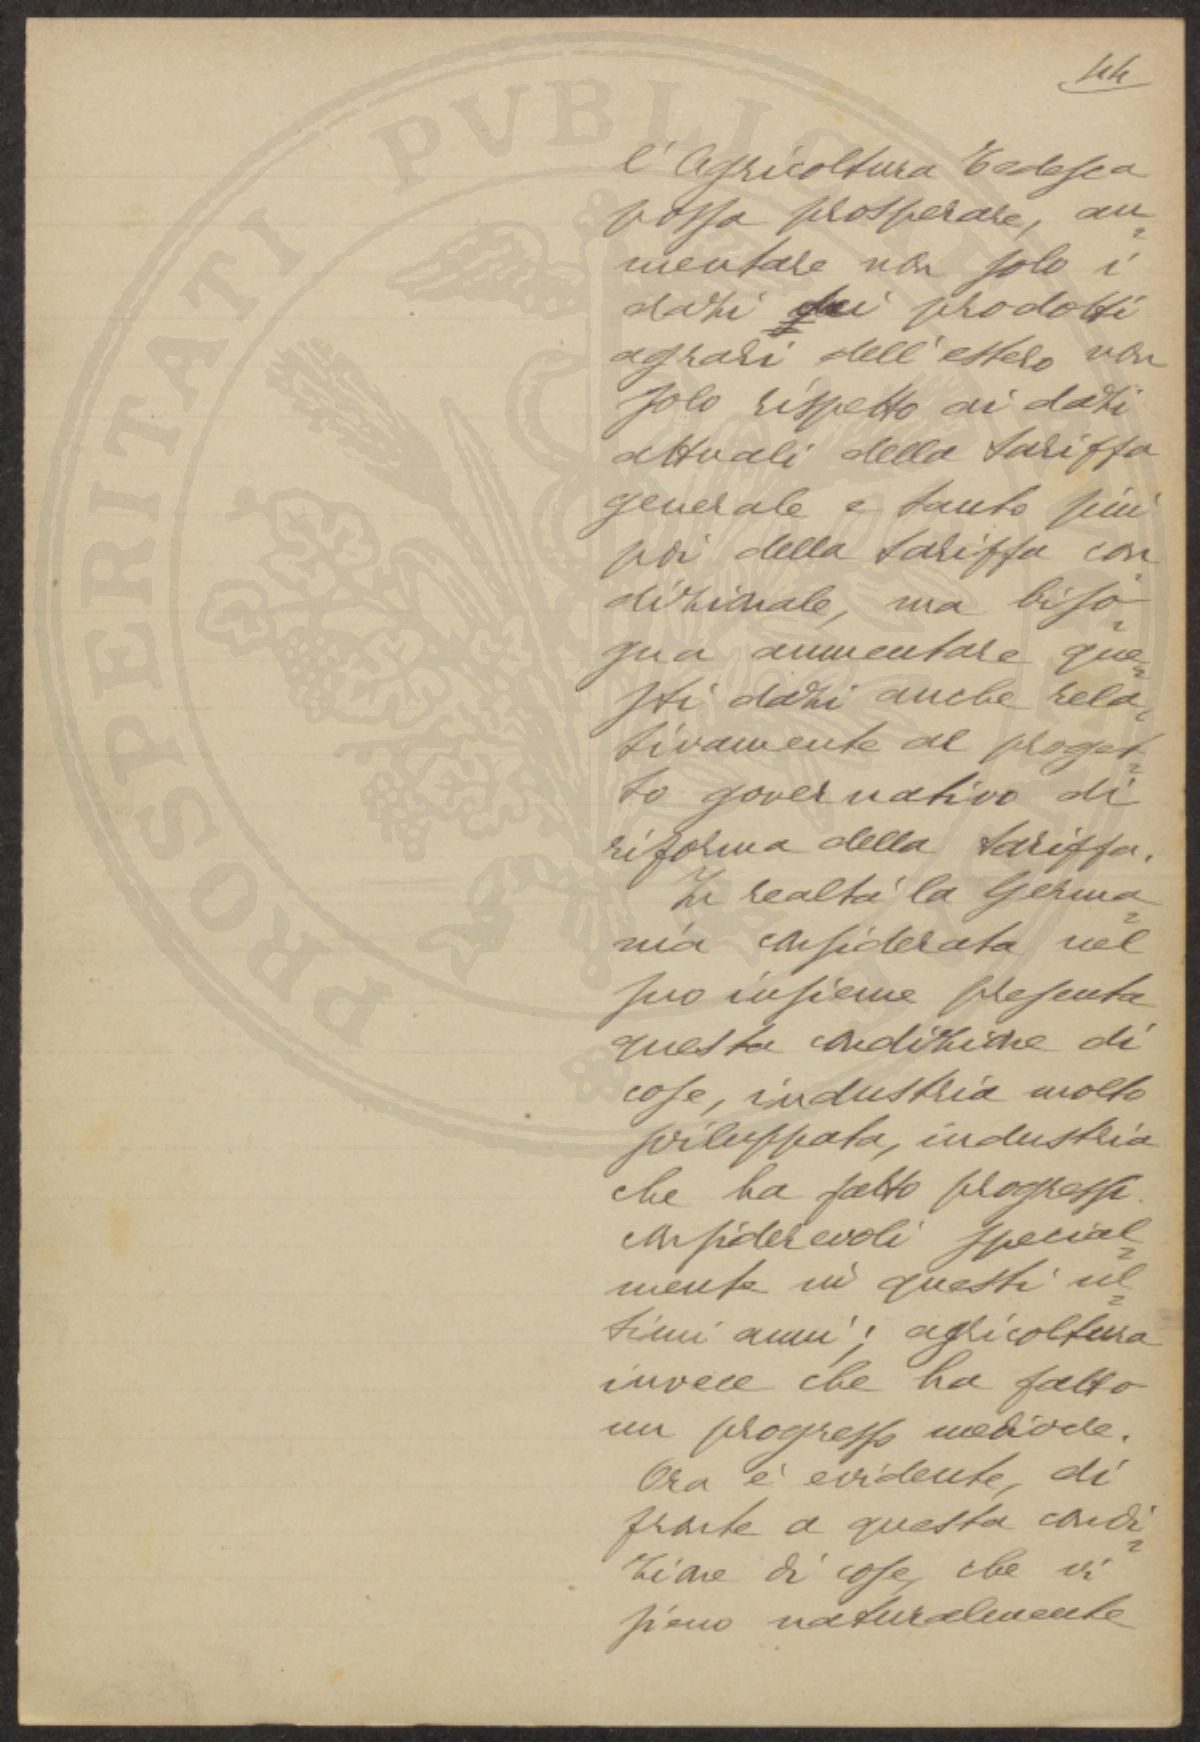 44
PROSPERITATI PUBLICAE
l'Agricoltura Tedesca
possa prosperare, au=
mentare non solo i
dazi sui prodotti
agrari dell'estero non
solo rispetto ai dazi
attuali della tariffa
generale e tanto più
poi della tariffa con=
dizionale, ma biso=
gna aumentare que=
sti dazi anche rela=
tivamente al proget=
to governativo di
riforma della tariffa.
In realtà la Germa=
nia considerata nel
suo insieme presenta
questa condizione di
cose, industria molto
sviluppata, industria
che ha fatto progressi
considerevoli special=
mente in questi ul=
timi anni; agricoltura
invece che ha fatto
un progresso mediocre.
Ora è evidente, di
fronte a questa condi=
zione di cose, che vi
siano naturalmente